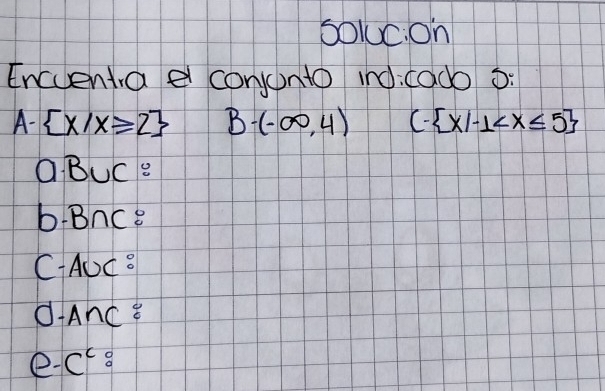 Solución
Encuentra el conjunto indicado si:
A-{x/x≥2} B-(-∞,4) C-{x/-1<x≤5}
a.B∪C:
b-B∩C:
C-A∪C:
d-A∩C:
e-Cᶜ: